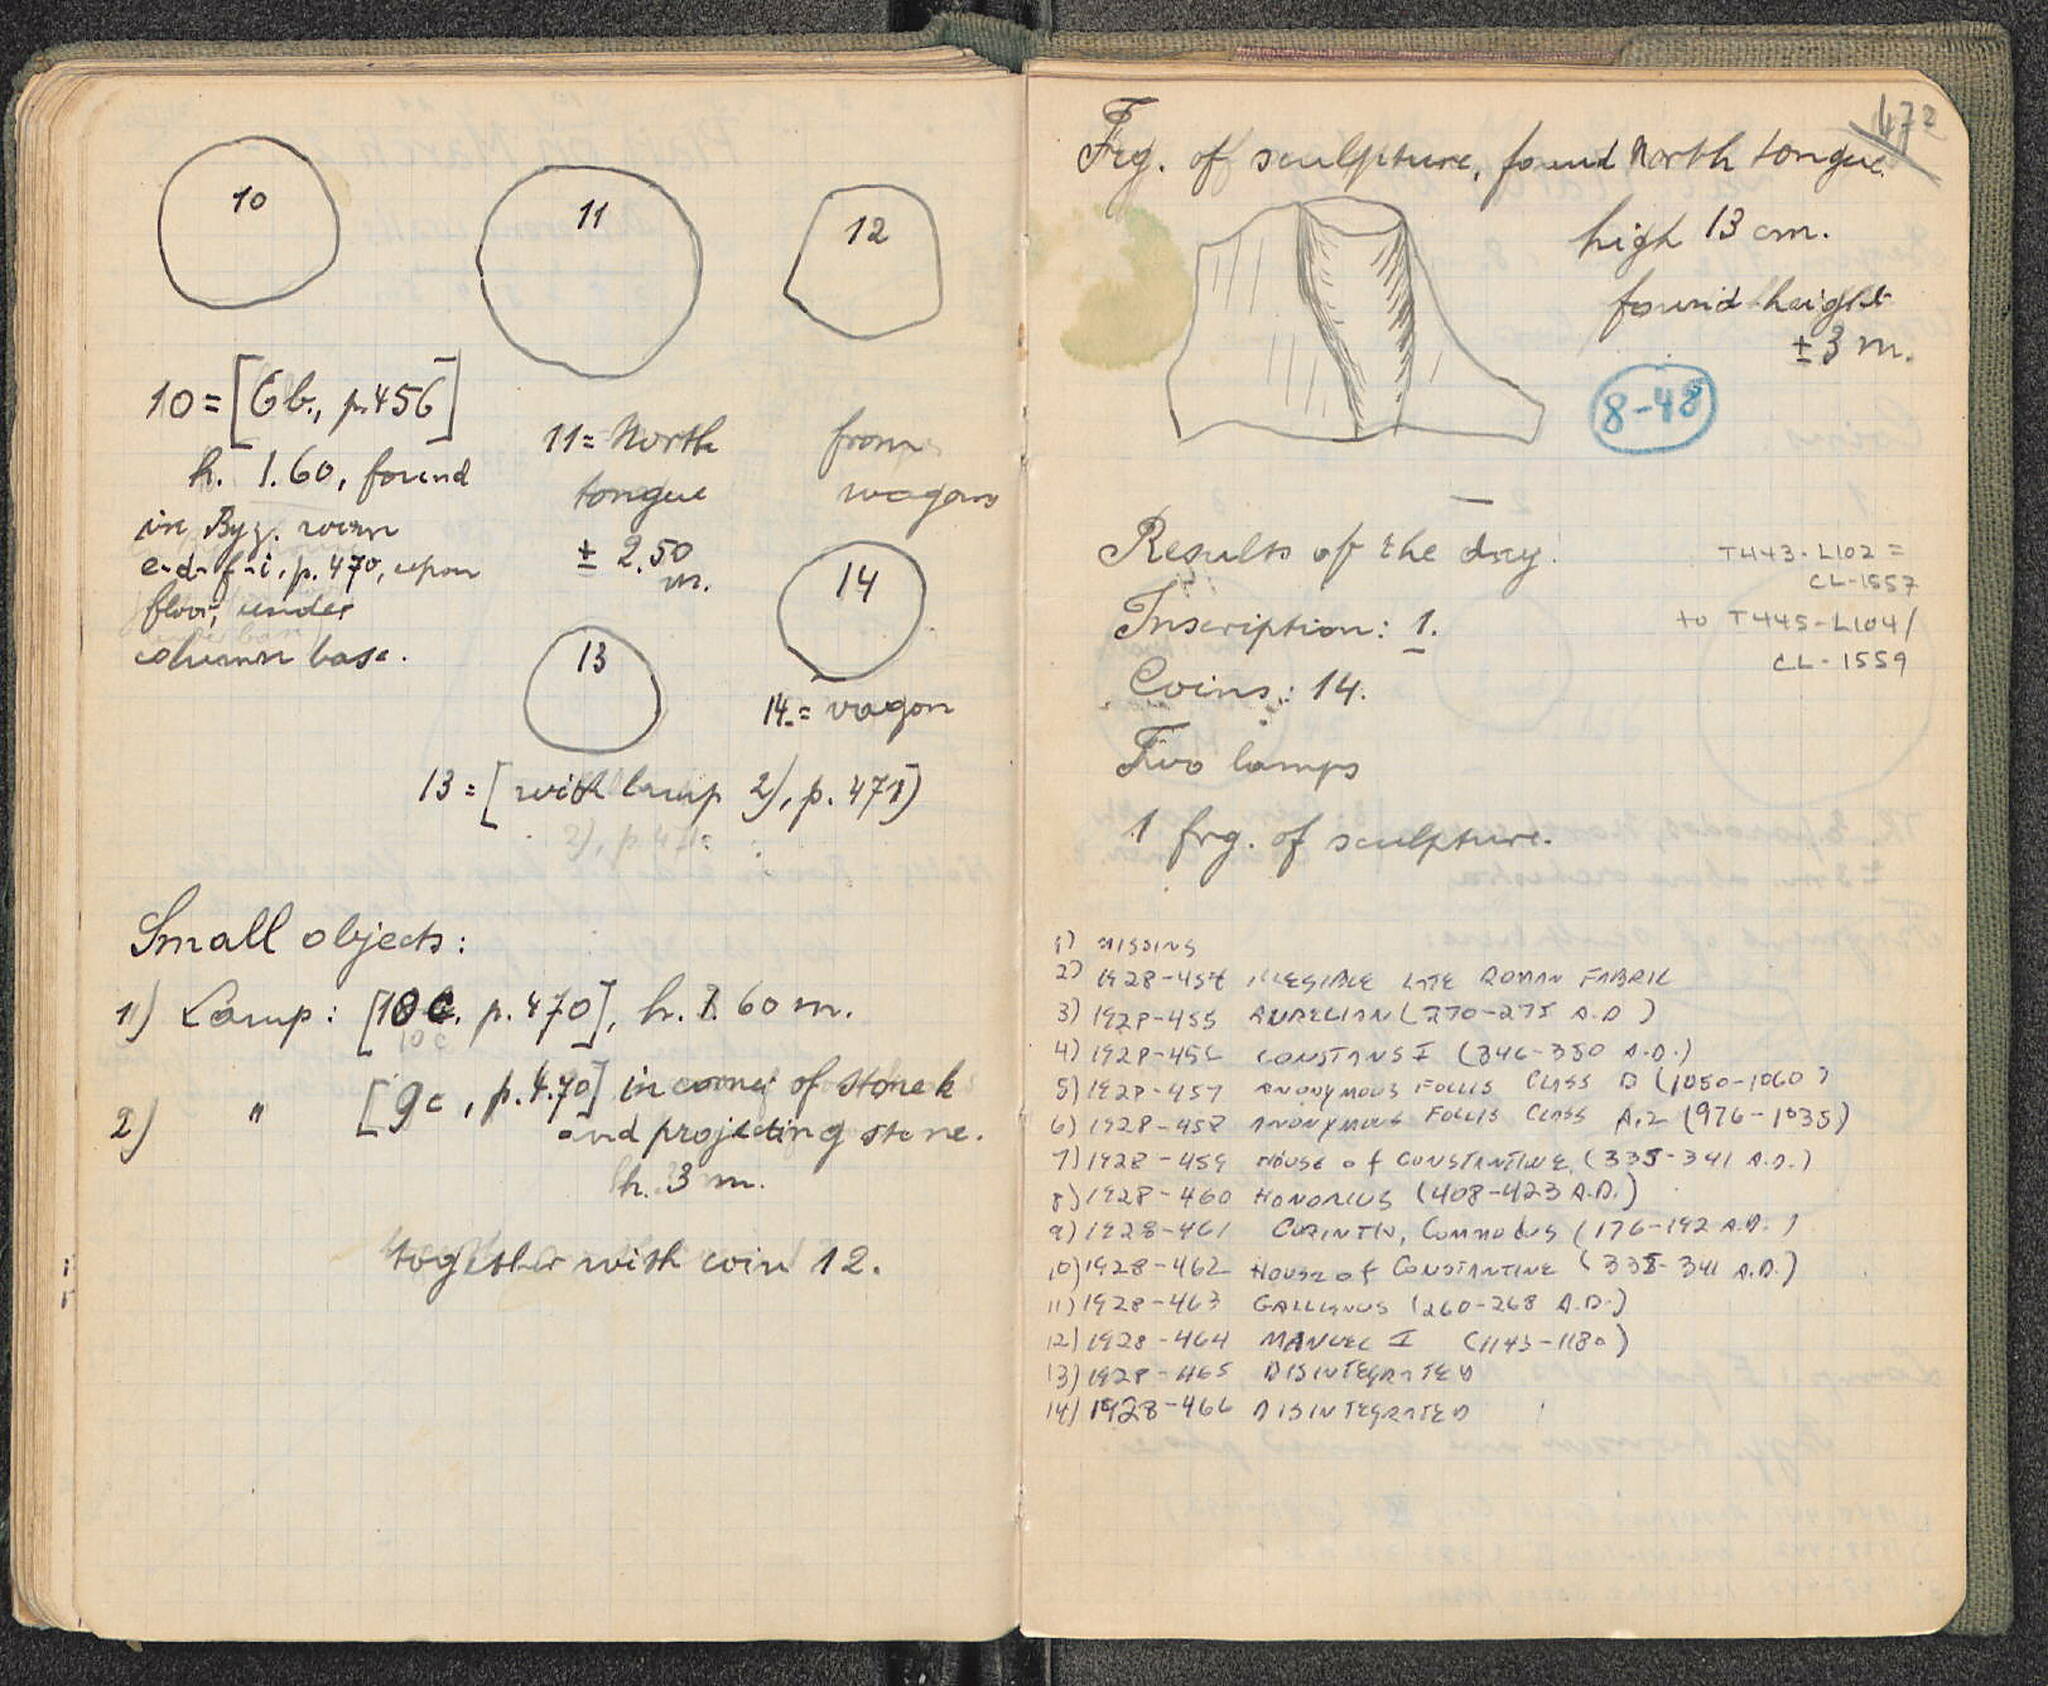 10
11
12
10 = [6b., p. 456]
h. 1.60, found
in Byz. room
e-d-f-i, p. 470, upon
floor, under
column base.
11 = North
tongue
± 2.50
m.
from
wagons
14
13
14. = vagon
13 = [with lamp 2), p. 471)
2), p 471
Small objects:
1) Lamp: [10 c. p. 470], h. 1. 60 m.
10 c
2) " [9c, p. 470] in corner of stone k
and projecting stone.
h. 3 m.
together with coin 12.
472
Frg. of sculpture, found North tongue.
high 13 cm.
found height
± 3 m.
8-48
Results of the day.
T443-L102 =
CL-1557
to T445-L104/
CL-1559
Inscription: 1.
Coins: 14.
Two lamps
1 frg. of sculpture.
1) MISSING
2) 1928-454 ILLEGIBLE LATE ROMAN FABRIC
3) 1928-455 AURELIAN (270-275 A.D)
4) 1928-456 CONSTANS I (346-350 A.D.)
5) 1928-457 ANONYMOUS FOLLIS CLASS D (1050-1060)
6) 1928-458 ANONYMOUS FOLLIS CLASS A.2 (976-1035)
7) 1928-459 HOUSE of CONSTANTINE (335-341 A.D.)
8) 1928-460 HONORIUS (408-423 A.D.)
9) 1928-461 CORINTH, COMMODUS (176-192 A.D.)
10) 1928-462 HOUSE of CONSTANTINE (335-341 A.D.)
11) 1928-463 GALLIENUS (260-268 A.D.)
12) 1928-464 MANUEL I (1143-1180)
13) 1928-465 DISINTEGRATED
14) 1928-466 DISINTEGRATED